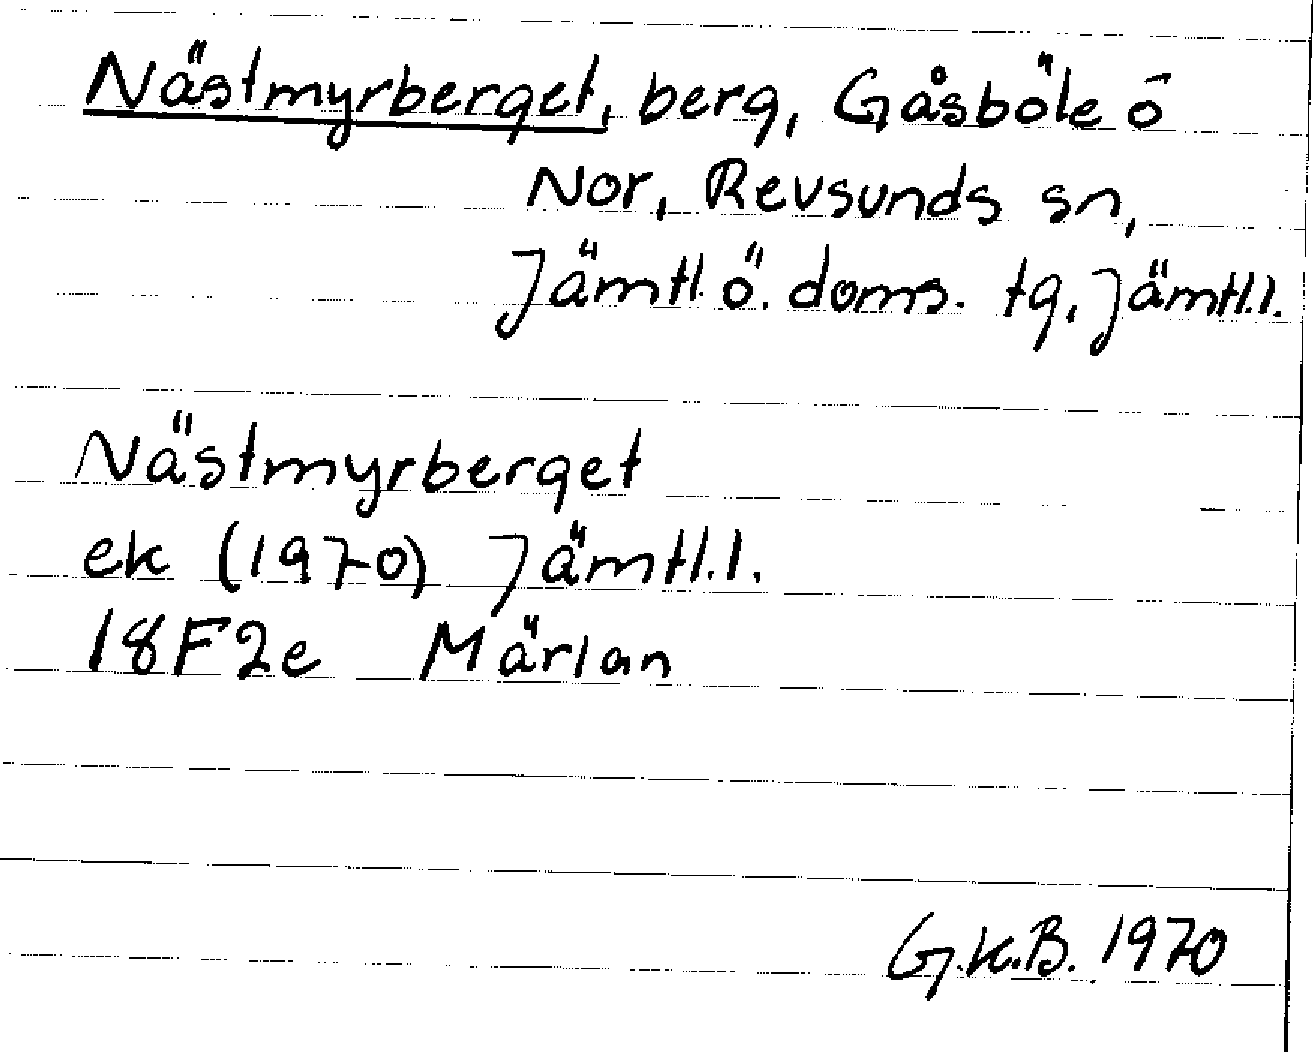 Nästmyrberget, berg, Gåsböle o
Nor, Revsunds sn,
Jämtl. ö. doms. tg, Jämtl.l.
Nästmyrberget
ek (1970) Jämtl.l.
18F2e Märlan
G.K.B. 1970